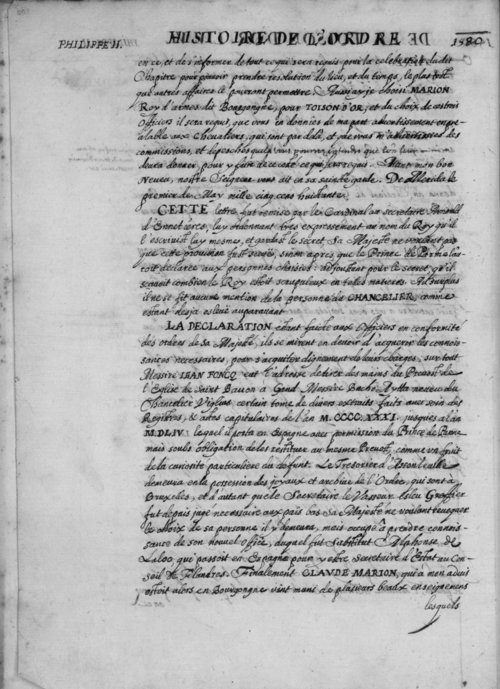 PHILIPPE II. HISTOIRE DE L'ORDRE 1580
en ce, et de s'informer de tout ce qui sera requis pour la celebration dudit
Chapitre pour pouvoir prendre resolution du lieu, et du temps, le plus tost
que autres affaires le pourront permettre. Aussi ay je choisi MARION
Roy d'armes de Bourgongne, pour TOISON D'OR, et du choix de
Officiers il sera requis, que vous en donnies de ma part advertissement
aux Chevaliers, qui sont par delà, et que vous des
commissions, et depesches quels vous pourrez entendre que l'on leur
devra donner, pour y faire ce qui sera requis. A tant mon bon
Neveu, nostre Seigneur vous ait en sa sainte garde. De Merida le
premier de May mille cinq cens huictante.
CETTE lettre fut remise par le Cardinal au secretaire
d'Ennetieres, luy ordonnant tres expressement au nom du Roy qu'il
l'escrivist luy mesmes, et gardast le secret, Sa Majesté ne voulant pas
que cette provision fust sceüe, sinon apres que le Prince de Parme
declaré aux personnes choisies: pour le secret qu'il
sçavoit combien le Roy estoit scrupuleux en telles matieres. Au surplus
il ne se fit aucune mention de la personne du CHANCELIER, comme
estant desja esleu auparavant.
LA DECLARATION estant faicte aux Officiers en conformité
des ordres de sa Majesté, ils se mirent en devoir d'acquerir les connois-
sances necessaires, pour s'acquitter dignement de leurs charges, sur tout
Messire IEAN FONCQ eut l'adresse de tirer des mains du Prevost de
l'Eglise de Saint Bavon à Gand Messire Bucho Aytta neveu du
Chancelier Viglius certain tome de divers extraits faits aux soin des
Registres, & actes capitulaires de l'an M.CCCC.XXXI. jusques à l'an
M.D.LIV. lequel il porta en Espagne avec permission du Prince de Parme
mais soubs obligation de les restituer au mesme Prevost, comme un fruit
de la curiosité particuliere du defunt. Le Tresorier d'Assonleville
demeura en la possession des joyaux et archives de l'Ordre, qui sont à
Bruxelles, et d'autant que le Secretaire le Vasseur esleu Greffier
fut depuis jugé necessaire aux païs bas sa Majesté ne voulant revoquer
le choix de sa personne il y demeura, mais occupé à prendre connois-
sance de son nouvel office, duquel fut substitut Alphonse de
Laloo, qui passoit en Espagne pour y estre Secretaire d'Estat au Con-
seil de Flandres. Finalement CLAUDE MARION, qui à mon advis
estoit alors en Bourgongne vint muni de plusieurs beaux enseignemens
lesquels